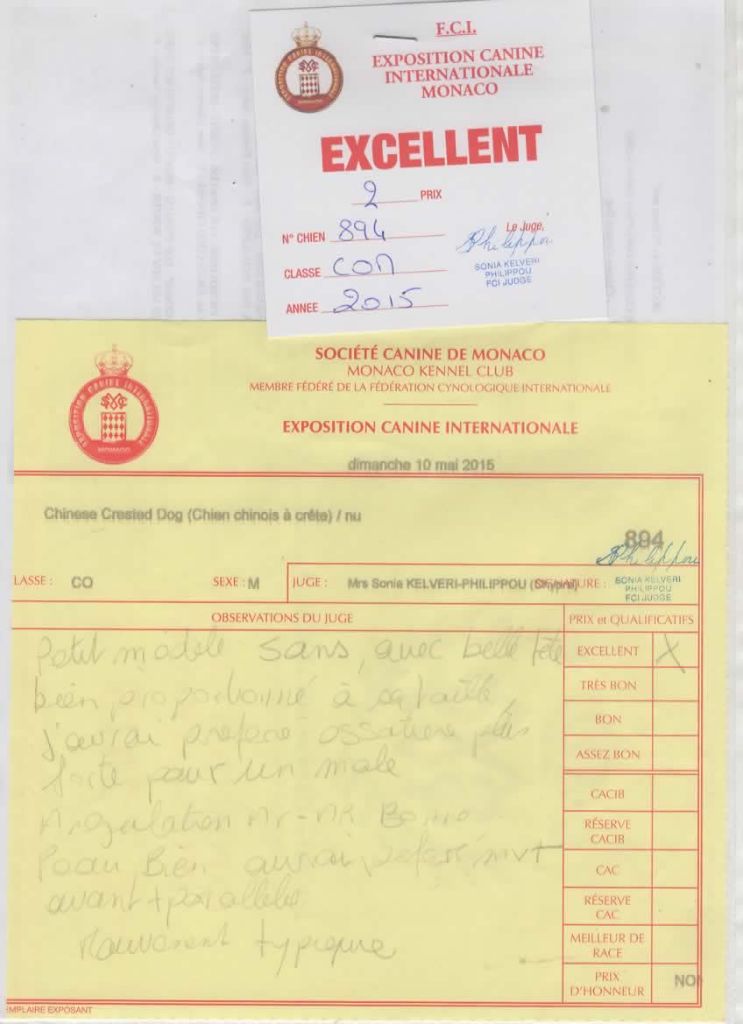 F.C.I.
EXPOSITION CANINE
INTERNATIONALE
MONACO
EXCELLENT
2 PRIX
N° CHIEN 894
CLASSE CON
ANNEE 2015
Le Juge,
Philippou
SONIA KELVERI
PHILIPPOU
FCI JUDGE
EXPOSITION CANINE INTERNATIONALE
MONACO
SOCIÉTÉ CANINE DE MONACO
MONACO KENNEL CLUB
MEMBRE FÉDÉRÉ DE LA FÉDÉRATION CYNOLOGIQUE INTERNATIONALE
EXPOSITION CANINE INTERNATIONALE
dimanche 10 mai 2015
Chinese Crested Dog (Chien chinois à crête) / nu
894
Philippou
LASSE : CO SEXE : M JUGE : Mrs Sonia KELVERI-PHILIPPOU
SONIA KELVERI
PHILIPPOU
FCI JUDGE
OBSERVATIONS DU JUGE
PRIX et QUALIFICATIFS
Petit modele sans, avec belle tête
bien proportionné à sa taille,
J'avrai prefere ossature plus
forte pour un male
Peau Bien mvt
avant + parallele
Mouvement typique
EXCELLENT X
TRÈS BON
BON
ASSEZ BON
CACIB
RÉSERVE
CACIB
CAC
RÉSERVE
CAC
MEILLEUR DE
RACE
PRIX
D'HONNEUR
NON
EMPLAIRE EXPOSANT